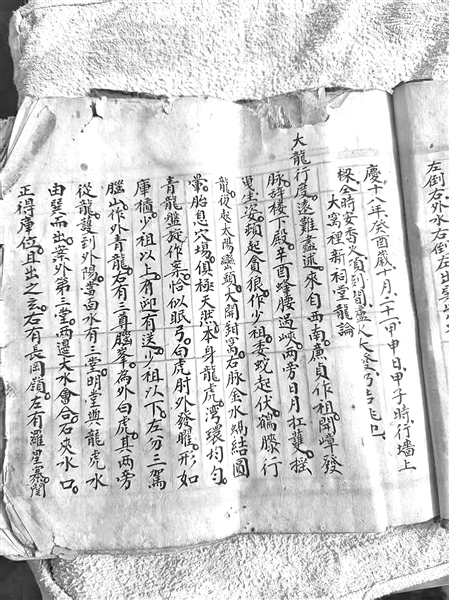 左倒右外水右倒左出
慶十八年癸酉歲十月二十一甲申日甲子時行墻上
樑仝時安香火須到間虛人人愛
大窩裡新祠堂龍論
大龍行度遠難盡述來自西南廉貞作祖開嶂發
脉諱樓下殿辛酉蜂腰過峽兩旁日月扛護搖
曳生姿頓起貪狼作少祖委蛇起伏鶴膝行
龍復起太陽巒頭大開鉗窩右脉金水蝸結圓
暈胎息穴塲傎極天然本身龍虎灣環均勻
青龍盤旋作案恰似眠弓白虎肘外發曜形如
庫櫃少祖以上有迎有送少祖以下左分三駕
腦山作外青龍右有三尊腦峯為外白虎其兩旁
從龍護到外陽當面水有三堂明堂與龍虎水
由巽而出案外第三堂兩邊大水會合右夾水口
正得庫位且出之玄右有長岡嶺左有羅星寨関